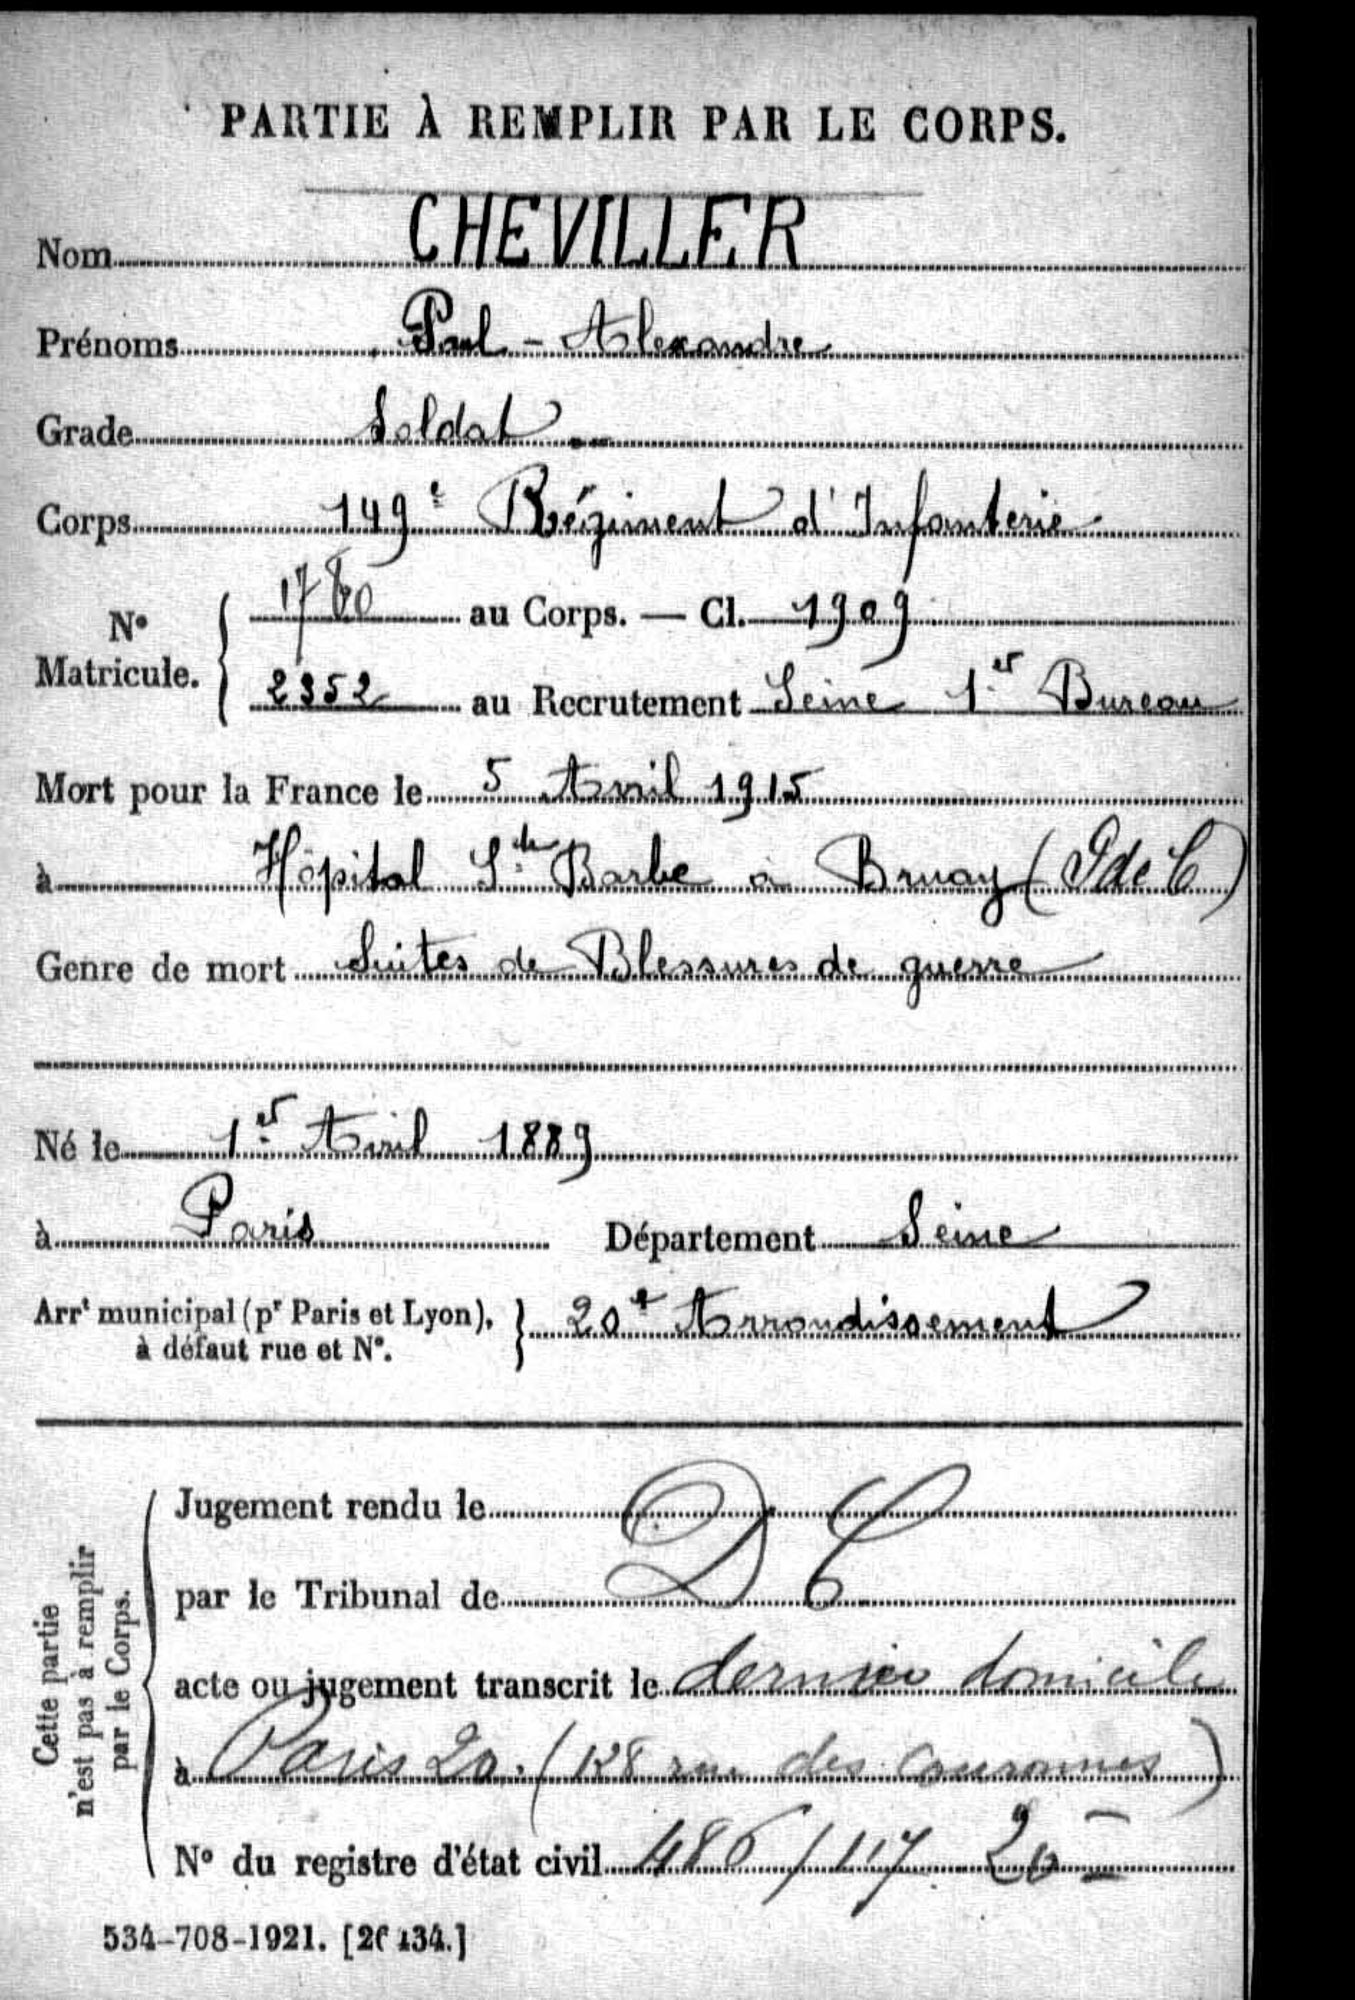 PARTIE À REMPLIR PAR LE CORPS.
Nom CHEVILLER
Prénoms Paul - Alexandre
Grade Soldat
Corps 149e Régiment d'Infanterie
N° Matricule. { au Corps. — Cl. 1909
2352 au Recrutement Seine 1er Bureau
Mort pour la France le 5 Avril 1915
à Hôpital Ste Barbe à Bruay (P de C)
Genre de mort Suites de Blessures de guerre
Né le 1er Avril 1889
à Paris Département Seine
Arrt municipal (pr Paris et Lyon), à défaut rue et N°. } 20e Arrondissement
Cette partie n'est pas à remplir par le Corps.
Jugement rendu le D C
par le Tribunal de
acte ou jugement transcrit le dernier domicile
à Paris 20. ( rue des Couronnes)
N° du registre d'état civil 486 / 117 20
534-708-1921. [26134.]